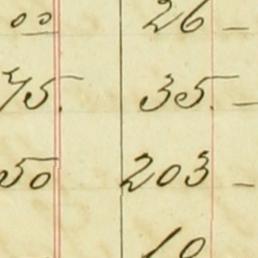 00 26 –
75. 35. –
50 203 –
10